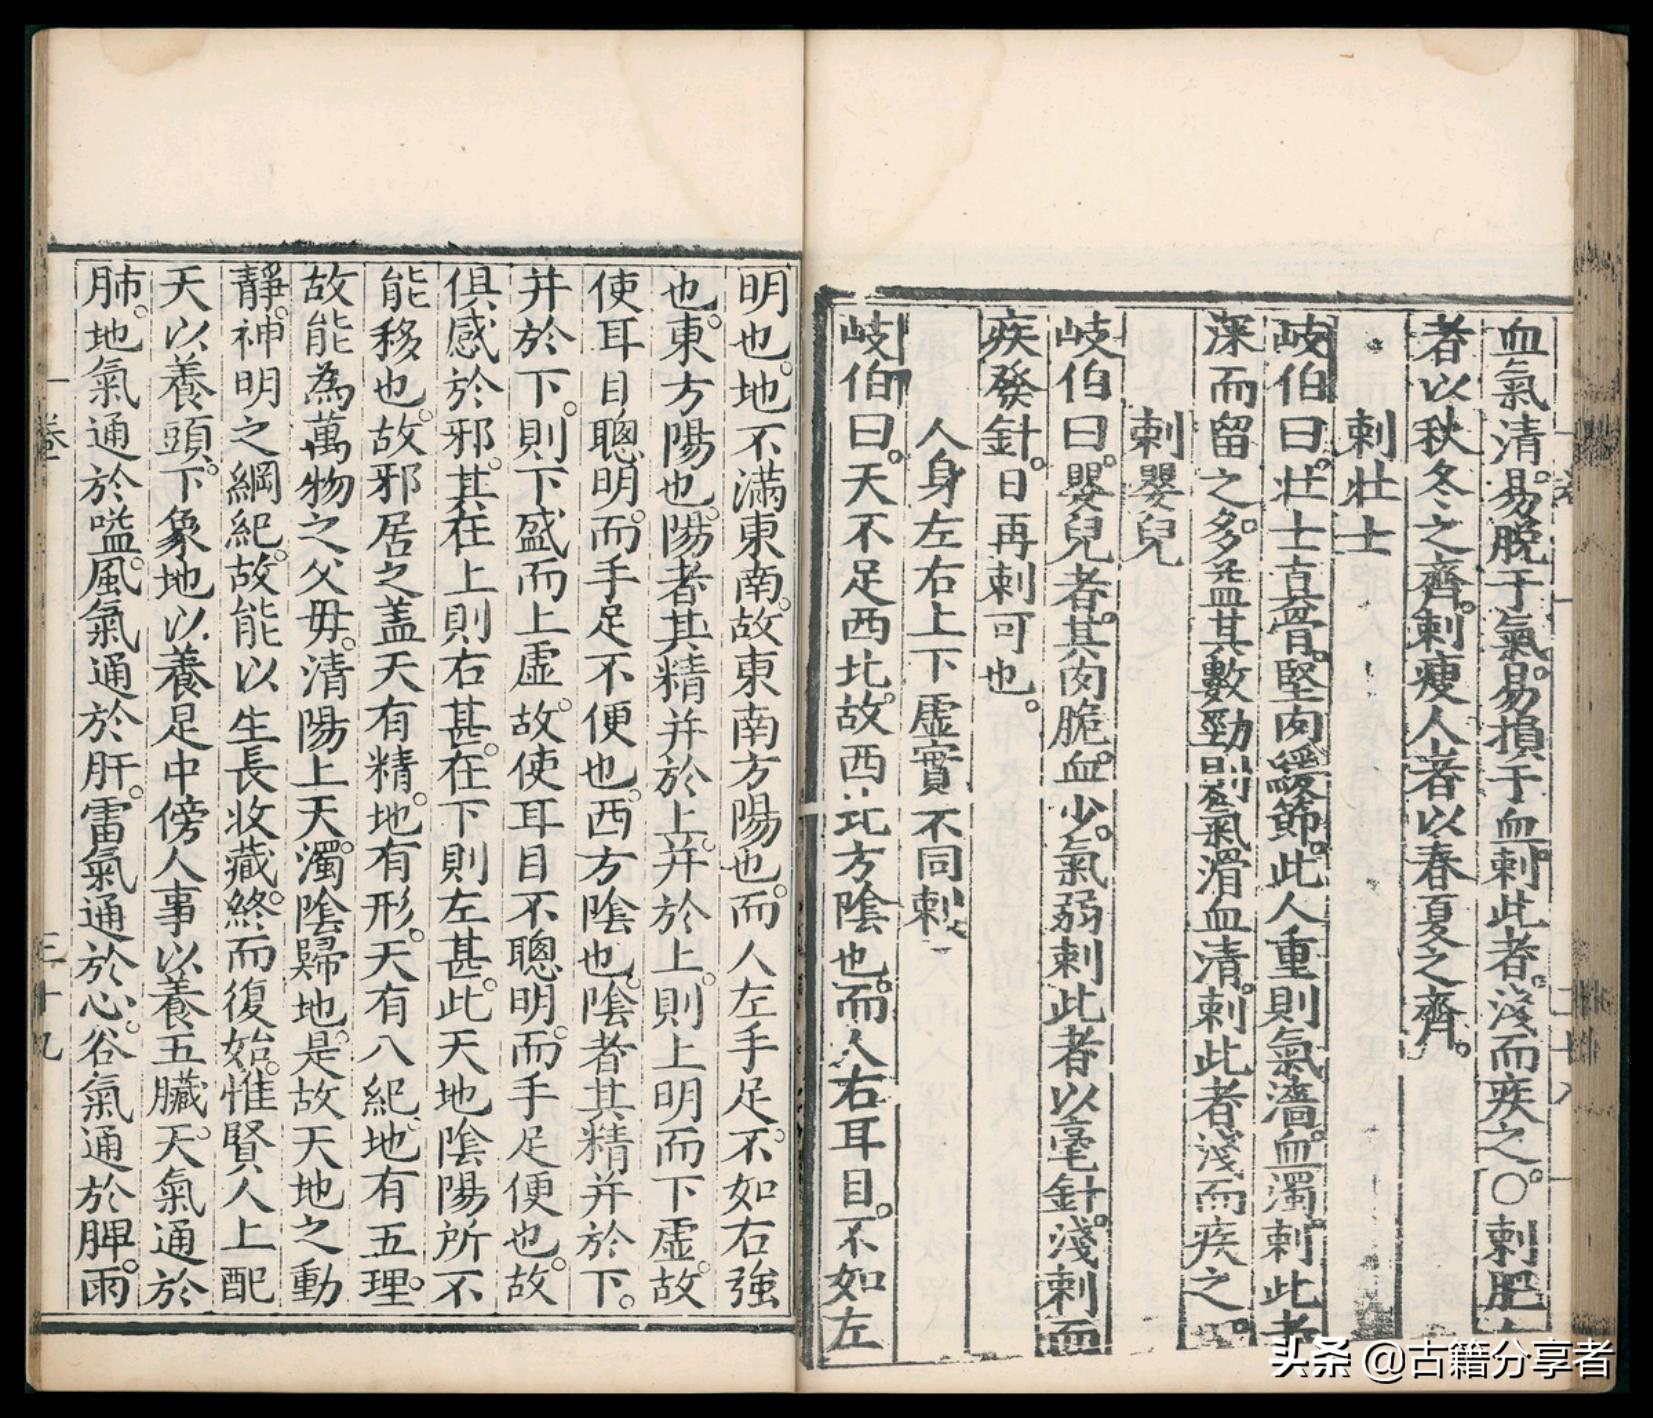 血氣清。易脫于氣。易損于血。刺此者。淺而疾之。〇刺肥
者以秋冬之齊。刺瘦人者以春夏之齊。
刺壯士
岐伯曰。壯士真骨。堅肉緩節。此人重則氣濇。血濁。刺此者
深而留之。多益其數。勁則氣滑血清。刺此者淺而疾之。
刺嬰兒
岐伯曰。嬰兒者。其肉脆。血少。氣弱。刺此者以毫針。淺刺而
疾發針。日再刺可也。
人身左右上下虛實不同刺
岐伯曰。天不足西北。故西北方陰也。而人右耳目。不如左
明也。地不滿東南。故東南方陽也。而人左手足。不如右強
也。東方陽也。陽者其精并於上。并於上。則上明而下虛。故
使耳目聰明。而手足不便也。西方陰也。陰者其精并於下。
并於下。則下盛而上虛。故使耳目不聰明。而手足便也。故
俱感於邪。其在上則右甚。在下則左甚。此天地陰陽所不
能移也。故邪居之盖天有精。地有形。天有八紀。地有五理。
故能為萬物之父毋。清陽上天。濁陰歸地。是故天地之動
靜。神明之綱紀。故能以生長收藏。終而復始。惟賢人上配
天以養頭。下象地以養足中傍人事以養五臟。天氣通於
肺。地氣通於嗌。風氣通於肝。雷氣通於心。谷氣通於脾。雨
卷一
三十九
头条 @古籍分享者